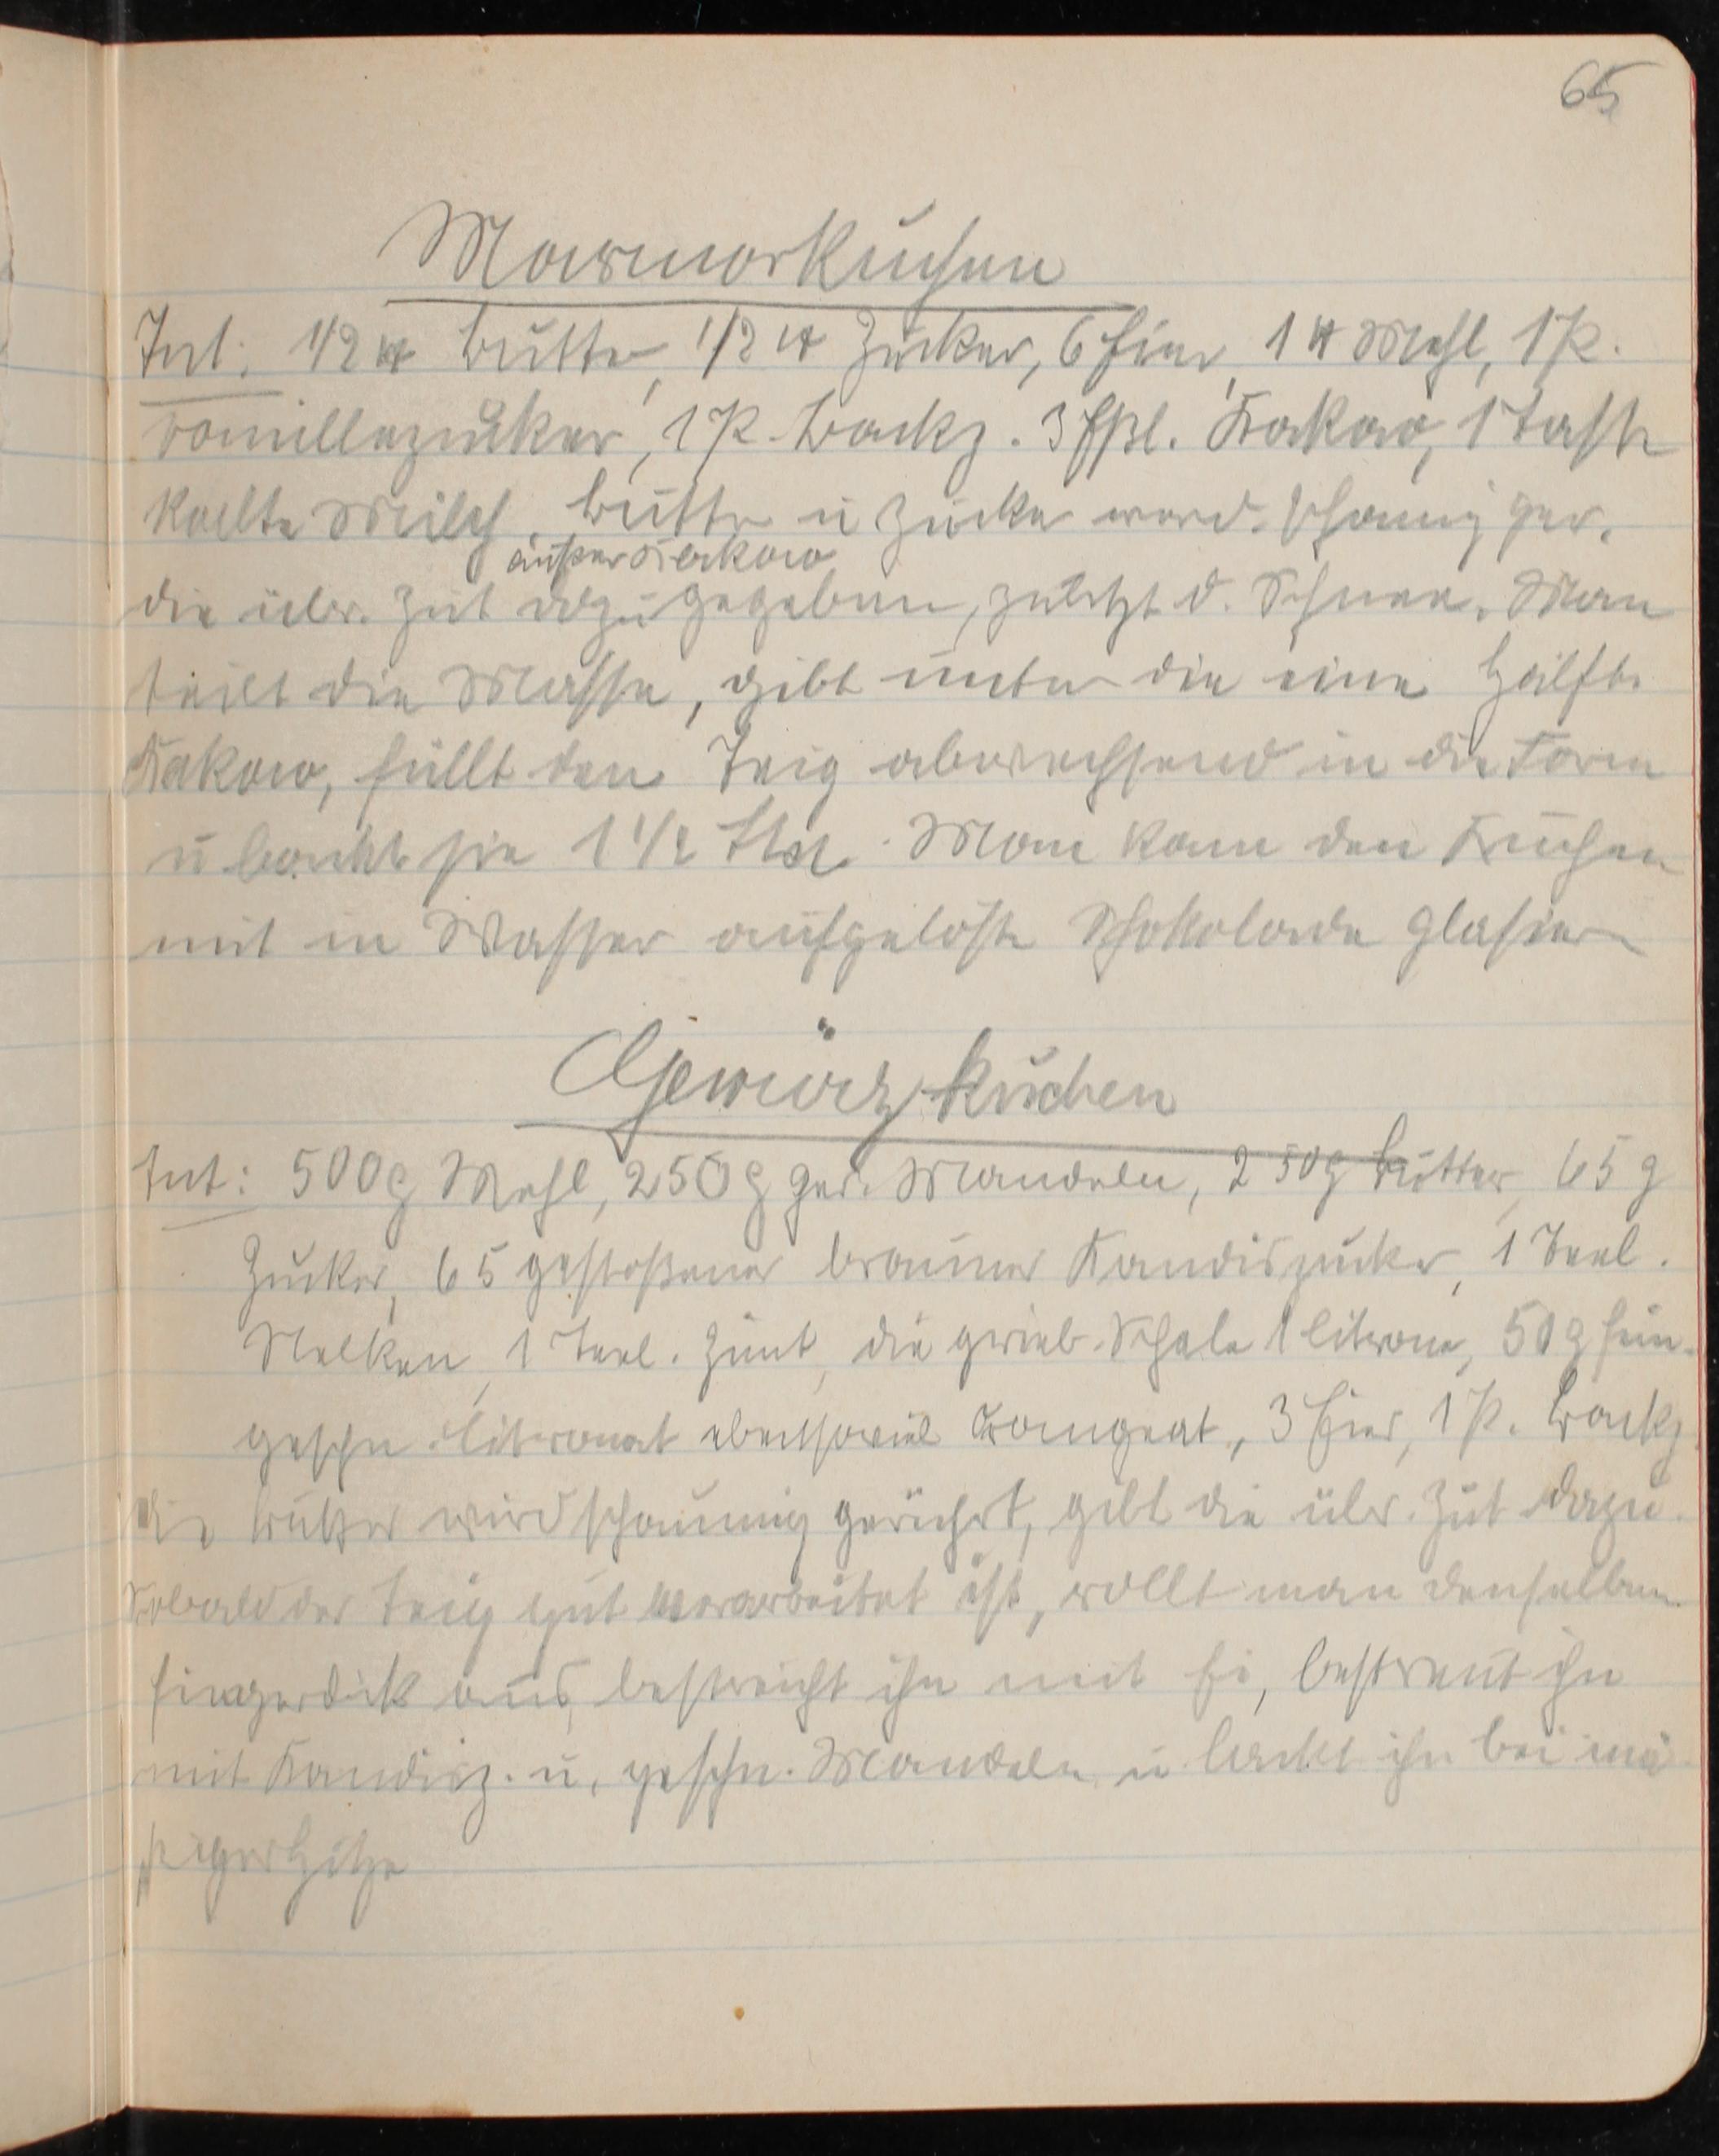 65
Marmorkuchen
Zut: 1/2 ℔ Butter, 1/2 ℔ Zucker, 6 Eier, 1 ℔ Mehl, 1 P.
Vanillezucker, 1 P. Backz. 3 Eßl. Kakao, 1 Tasse
kalte Milch. Butter u Zucker werd. schaumig ger.
außer Kakao
die übr. Zut dazu gegeben, zuletzt d. Schnee. Man
teilt die Masse, gibt unter die eine Hälfte
Kakao, füllt den Teig abwechselnd in die Form
u backt sie 1 1/2 Std. Man kann den Kuchen
mit in Wasser aufgelöste Schokolade glasieren
Gewürzkuchen
Zut: 500 g Mehl, 250 g ger. Mandeln, 250 g Butter, 65 g
Zucker, 65 gestoßener brauner Kandiszucker, 1 Teel.
Nelken, 1 Teel. Zimt, die gerieb. Schale 1 Citrone, 50 g fein-
geschn. Citronat ebensoviel Orangeat, 3 Eier, 1 P. Backz.
Die Butter wird schaumig gerührt, gibt die übr. Zut dazu.
Sobald der Teig gut verarbeitet ist, rollt man denselben
fingerdick aus, bestreicht ihn mit Ei, bestreut ihn
mit Kandisz. u. geschn. Mandeln u backt ihn bei mä
ßiger Hitze